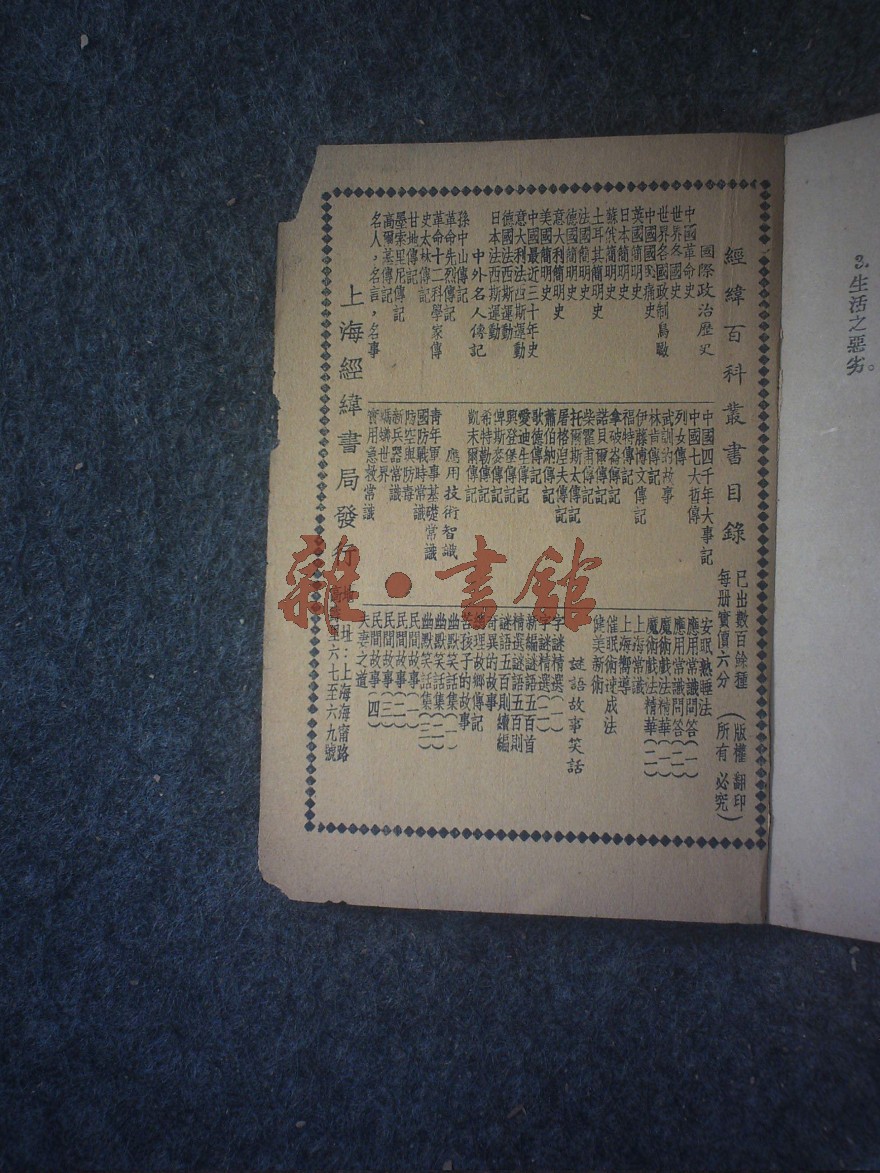 3. 生活之惡劣。
經緯百科叢書目錄
已出數百餘種
每册實價六分
(版權 翻印
所有 必究)
國際政治歷史
中國革命史
世界各國史
世界各國政制鳥瞰
中國國恥痛史
英國簡明史
日本簡明史
蘇俄簡明史
土耳其簡明史
法國簡明史
德國簡明史
意大利簡明史
美國簡明史
中國最近三十年史
意大利法西斯運動
德國法西斯運動
日本法西斯運動
中外名人傳記
孫中山傳記
革命先烈傳記
革命十二科學家傳
史太林傳記
甘地傳記
墨索里尼傳記
高爾基傳記
名人,名言,名事
中國四千年大事記
中國七大哲傳
列女傳
武訓的故事
林肯傳記
伊藤博文傳記
福特傳記
拿破崙傳記
諾貝爾傳記
柴霍甫傳記
托爾斯太傳記
屠格涅夫傳記
蕭伯納傳記
歌德傳記
愛迪生傳記
興登堡傳記
俾斯麥傳記
希特勒傳記
凱末爾傳記
應用技術智識
青年軍事基礎常識
國防戰時常識
防空與防毒
新兵器常識
螞蟻世界
實用急救常識
安眠熟睡法
應用常識問答(一)
應用常識問答(二)
魔術戲法精華(一)
魔術戲法精華(二)
上海常識
上海嚮導
催眠術速成法
健美新術
謎語故事笑話
字謎精選(一)
字謎精選(二)
新編謎語五百首
精選謎語五百則
謎語五百則續編
奇異的故事
苦孩子的故事
幽默笑話集(一)
幽默笑話集(二)
幽默笑話集(三)
民間故事(一)
民間故事(二)
民間故事(三)
民間故事(四)
夫妻之道
上海經緯書局發行
址:上海海甯路
六七至六九號
雜·書館